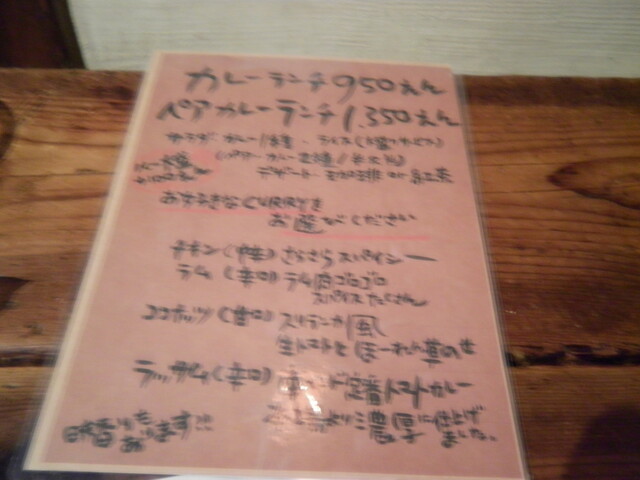 カレーランチ 950えん
ペアカレーランチ 1,350えん
サラダ・カレー1種・ライス
デザート・珈琲 or 紅茶
お好きなCURRYを
お選びください
チキン(中辛) さらさらスパイシー
ラム (辛口) ラム肉ゴロゴロ
スパイスたくさん
ココナッツ(甘口) スリランカ風
生トマトとほーれん草のせ
ラッサム(辛口) 南インド定番トマトカレー
濃厚に仕上げ
ました。
日替りも
あります!!